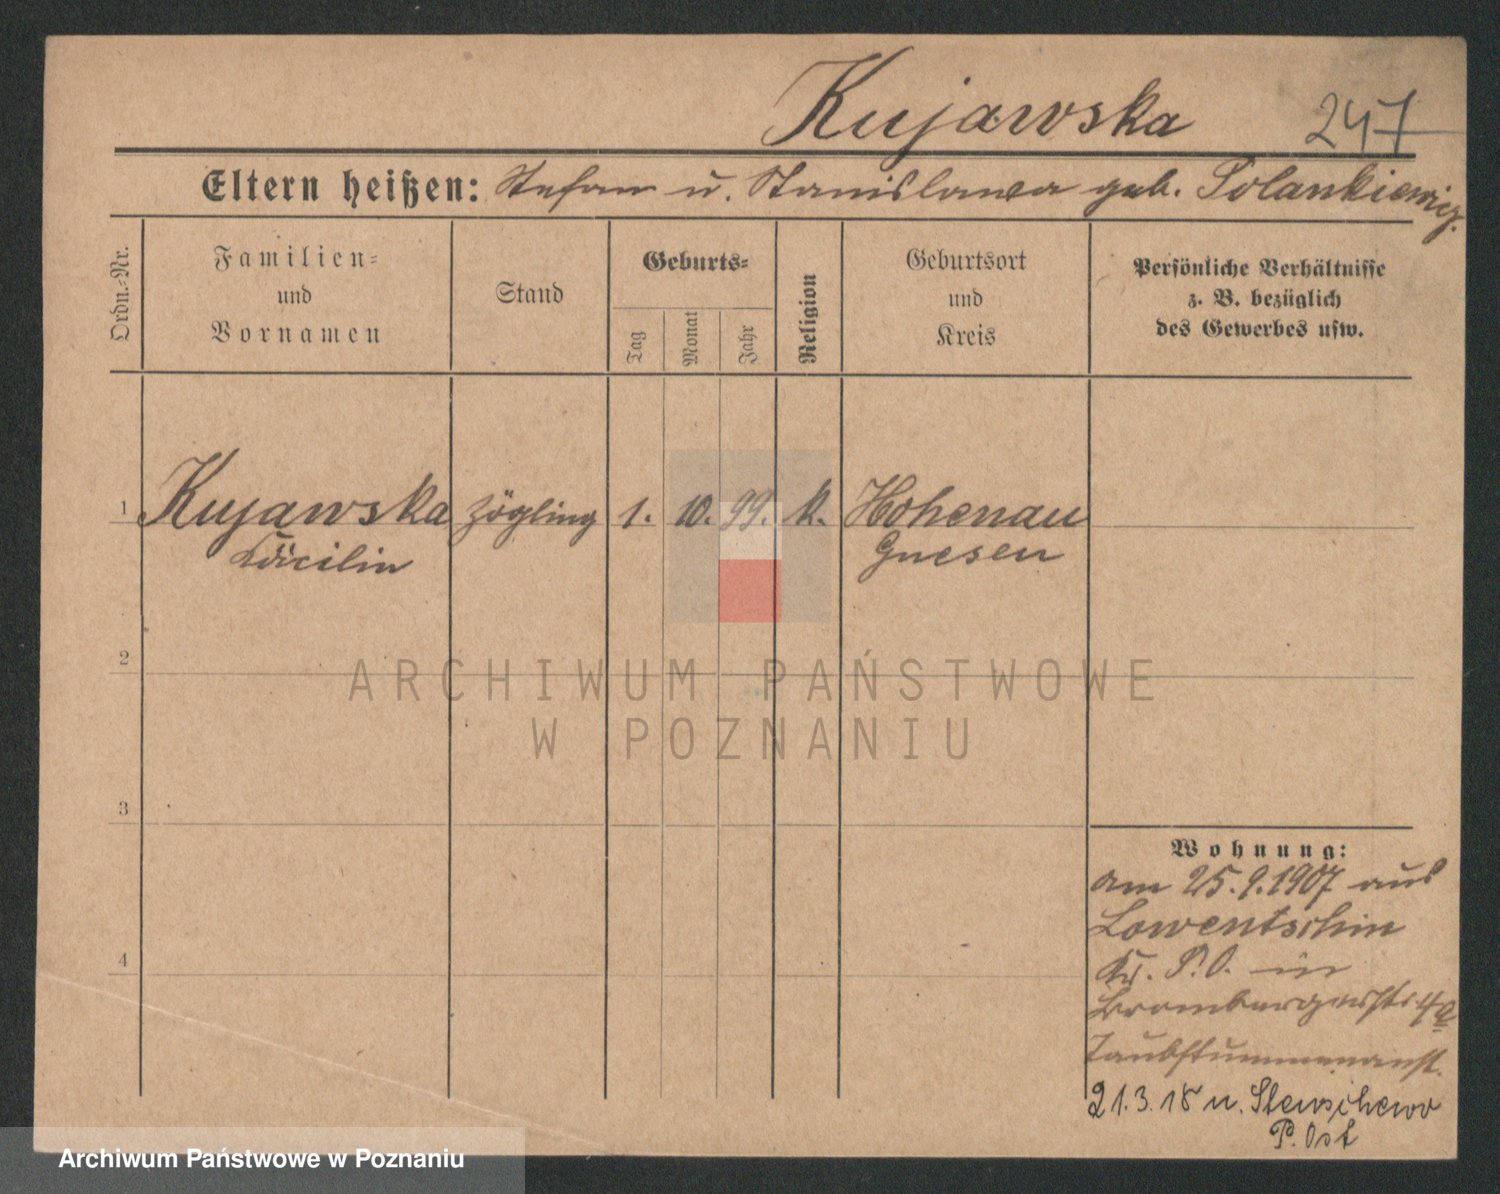 Kujawska 247
Eltern heißen: Stefan u. Stanislawa geb. Polankiewicz.
Ordn.-Nr.
Familien-
und
Vornamen
Stand
Geburts-
Tag
Monat
Jahr
Religion
Geburtsort
und
Kreis
Persönliche Verhältnisse
z. B. bezüglich
des Gewerbes usw.
1 Kujawska Zögling 1. 10. 99. k. Hohenau
Cäcilin Gnesen
2
ARCHIWUM PAŃSTWOWE
W POZNANIU
3
4
Wohnung:
am 25.9.1907 aus
Lowentschin
Kr. P.O. in
Brombergerstr. 4a
Taubstummenanst.
21.3.18 n. Slenschewo
P. Ost
Archiwum Państwowe w Poznaniu